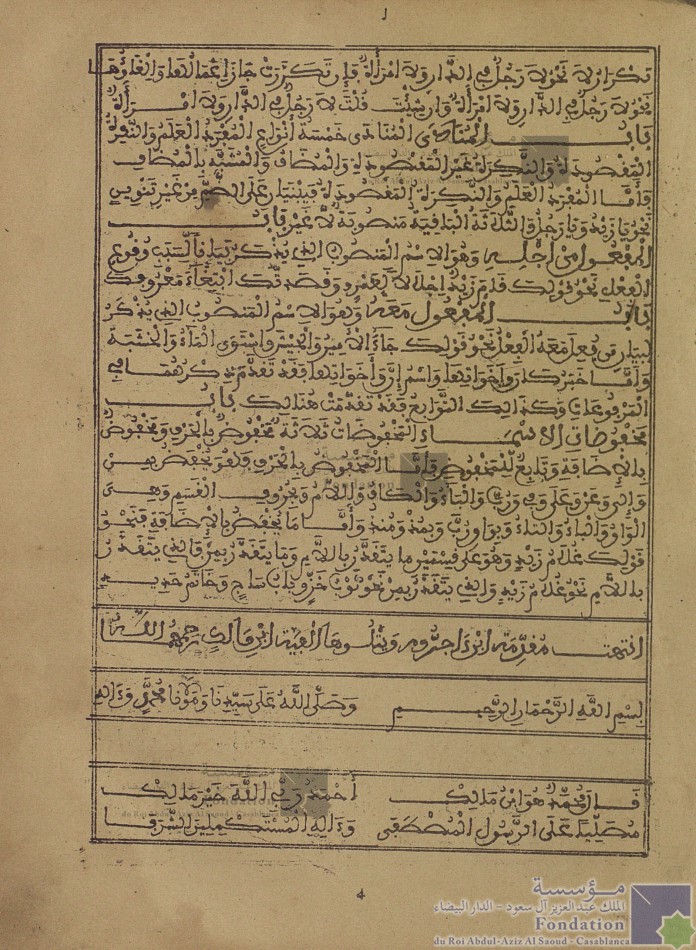 تكرار لا نحو لا رجل في الدار ولا امرأة فإن تكررت جاز إعمالها وإلغاؤها
نحو لا رجل في الدار ولا امرأة وإن شئت قلت لا رجل في الدار ولا امرأة
باب المنادى المنادى خمسة أنواع المفرد العلم والنكرة
المقصودة والنكرة غير المقصودة والمضاف والمشبه بالمضاف
فأما المفرد العلم والنكرة المقصودة فيبنيان على الضم من غير تنوين
نحو يا زيد ويا رجل والثلاثة الباقية منصوبة لا غير باب
المفعول من أجله وهو الاسم المنصوب الذي يذكر بيانا لسبب وقوع
الفعل نحو قولك قام زيد إجلالا لعمرو وقصدتك ابتغاء معروفك
باب المفعول معه وهو الاسم المنصوب الذي يذكر
لبيان من فعل معه الفعل نحو قولك جاء الأمير والجيش واستوى الماء والخشبة
وأما خبر كان وأخواتها واسم إن وأخواتها فقد تقدم ذكرهما في
المرفوعات وكذلك التوابع فقد تقدمت هنالك باب
مخفوضات الأسماء المخفوضات ثلاثة مخفوض بالحرف ومخفوض
بالإضافة وتابع للمخفوض فأما المخفوض بالحرف فهو يخفض بمن
وإلى وعن وعلى وفي ورب والباء والكاف واللام وبحروف القسم وهي
الواو والباء والتاء وبواو رب وبمذ ومنذ وأما ما يخفض بالإضافة فنحو
قولك غلام زيد وهو على قسمين ما يتقدر باللام وما يتقدر بمن فالذي يتقدر
باللام نحو غلام زيد والذي يتقدر بمن نحو ثوب خز وباب ساج وخاتم حديد
انتهت مقدمة ابن داجروم وتتلوها ألفية ابن مالك رحمهما الله
بسم الله الرحمان الرحيم وصلى الله على سيدنا ومولانا محمد وءاله
قال محمد هو ابن مالك أحمد ربي الله خير مالك
مصليا على الرسول المصطفى وءاله المستكملين الشرفا
4
مؤسسة
الملك عبد العزيز آل سعود - الدار البيضاء
Fondation
du Roi Abdul-Aziz Al Saoud - Casablanca